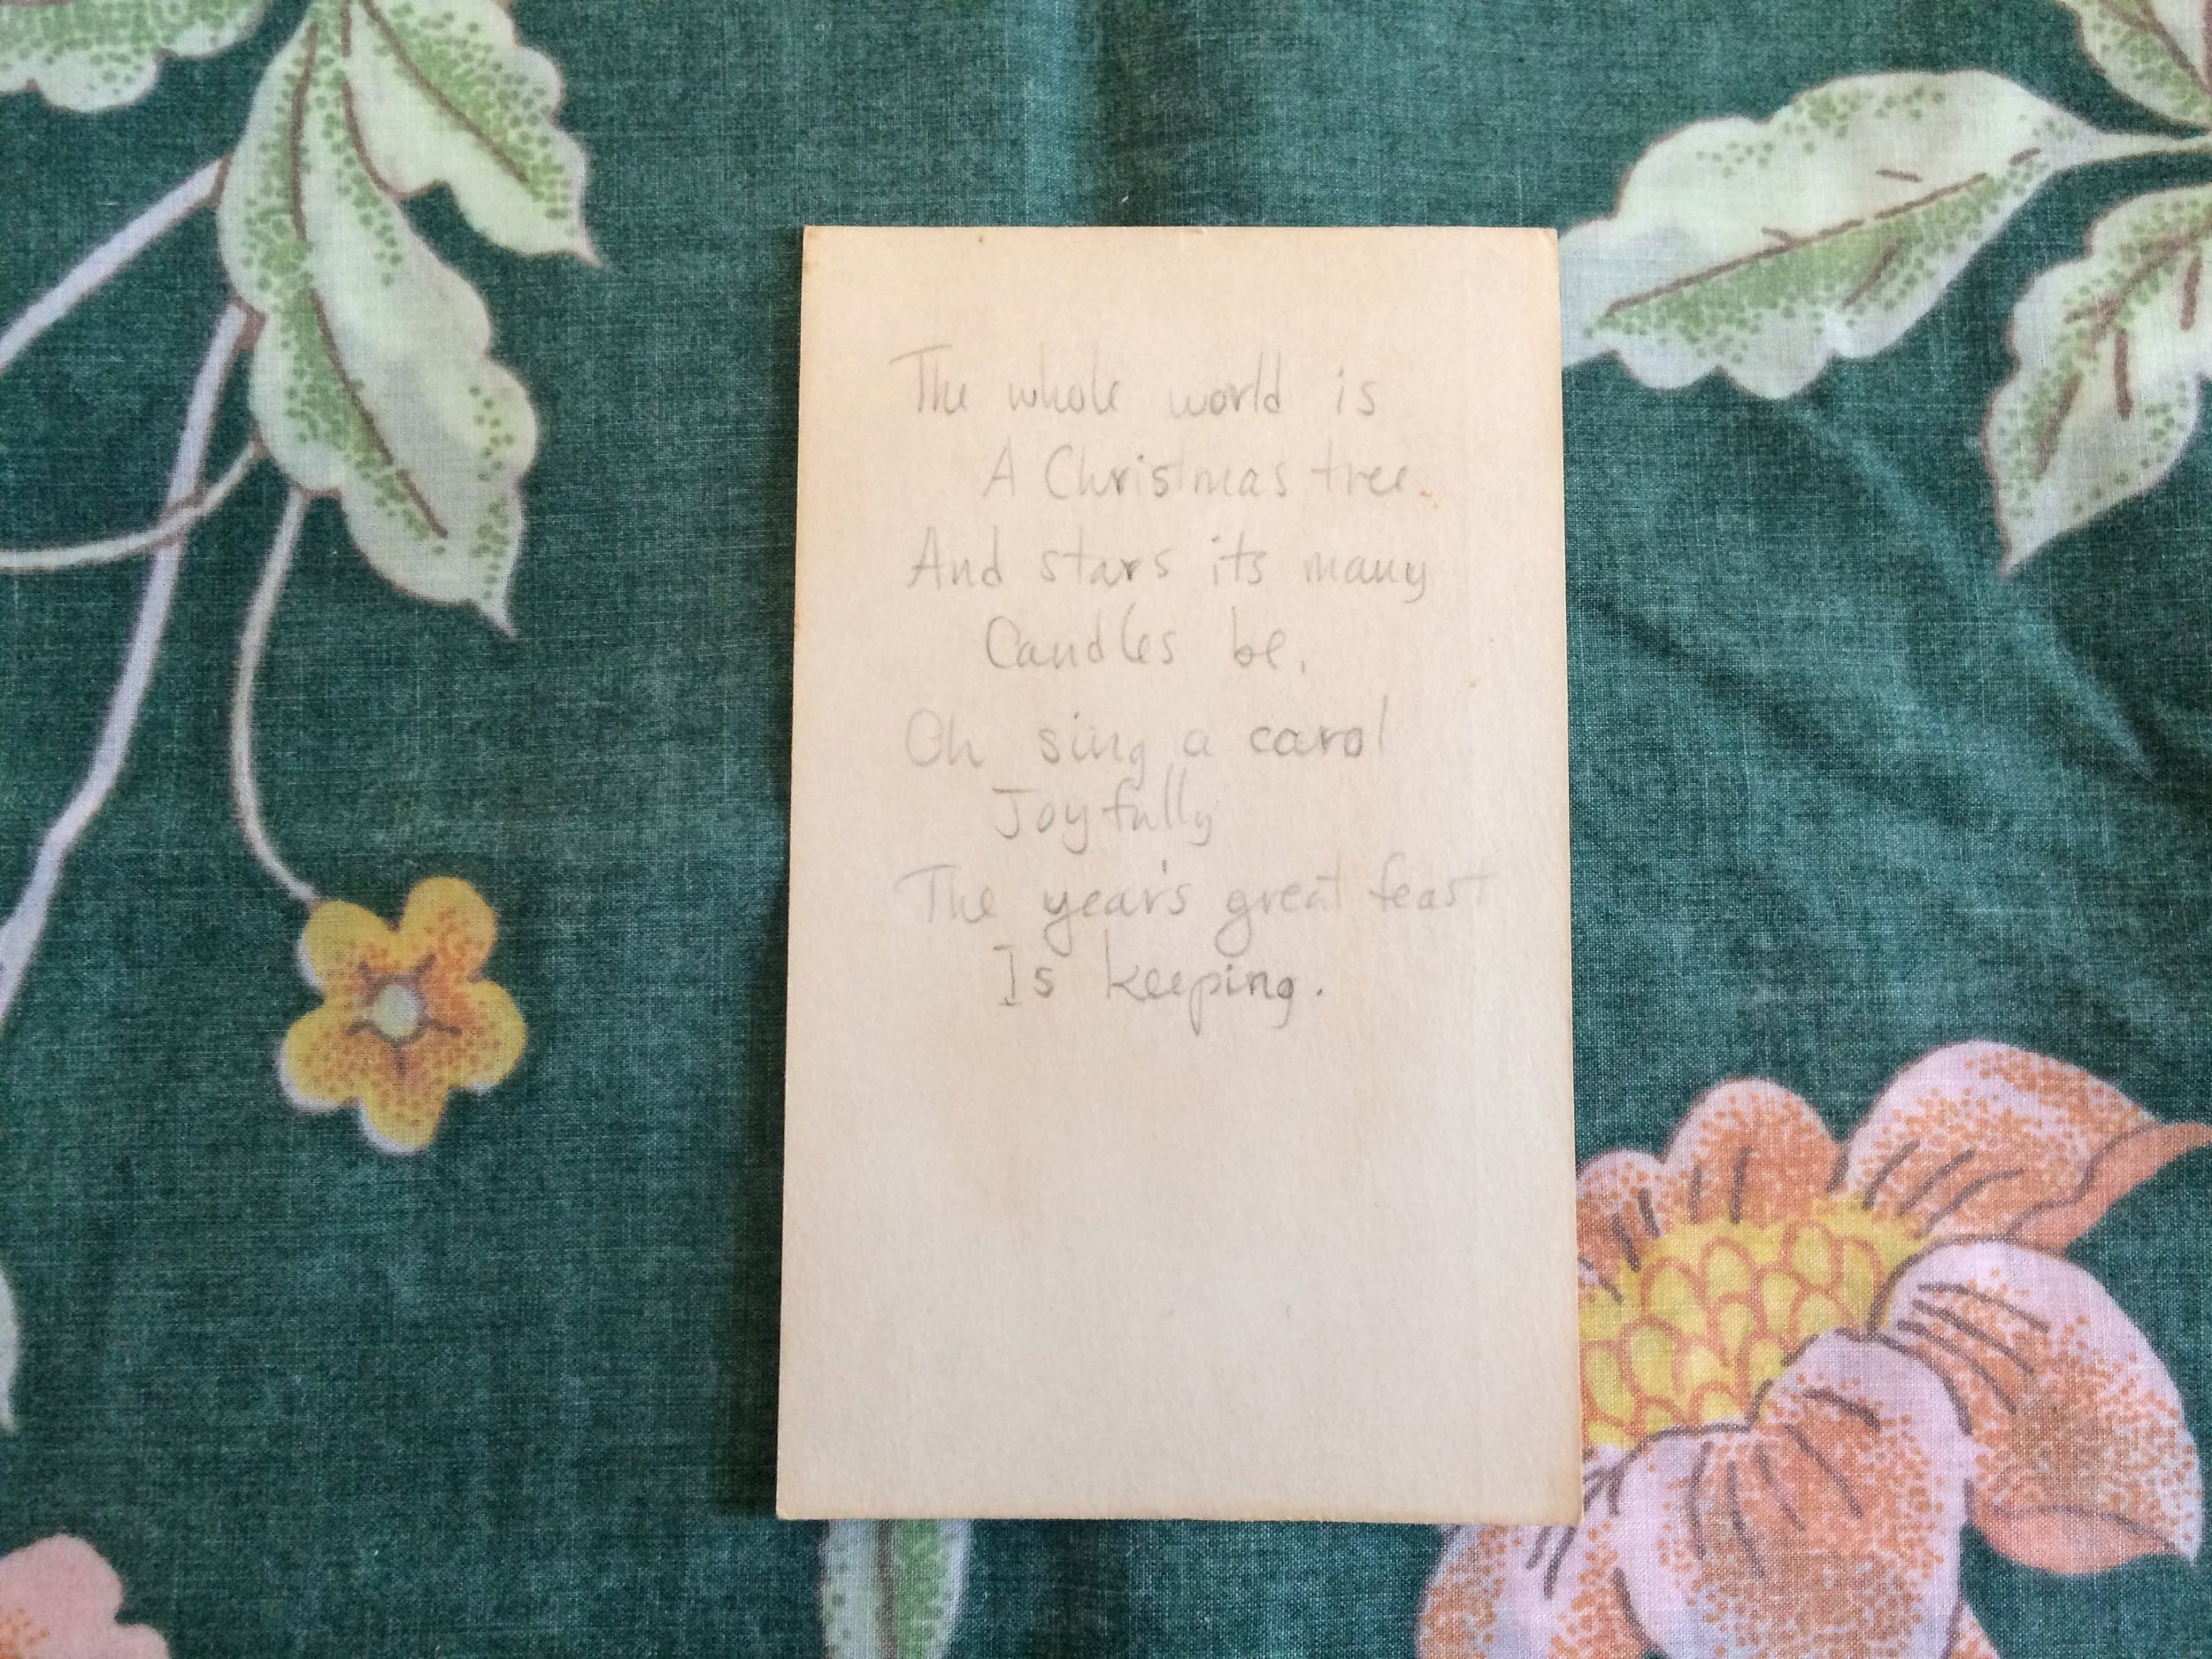 The whole world is
A Christmas tree.
And stars its many
Candles be.
Oh sing a carol
Joyfully
The year's great feast
Is keeping.